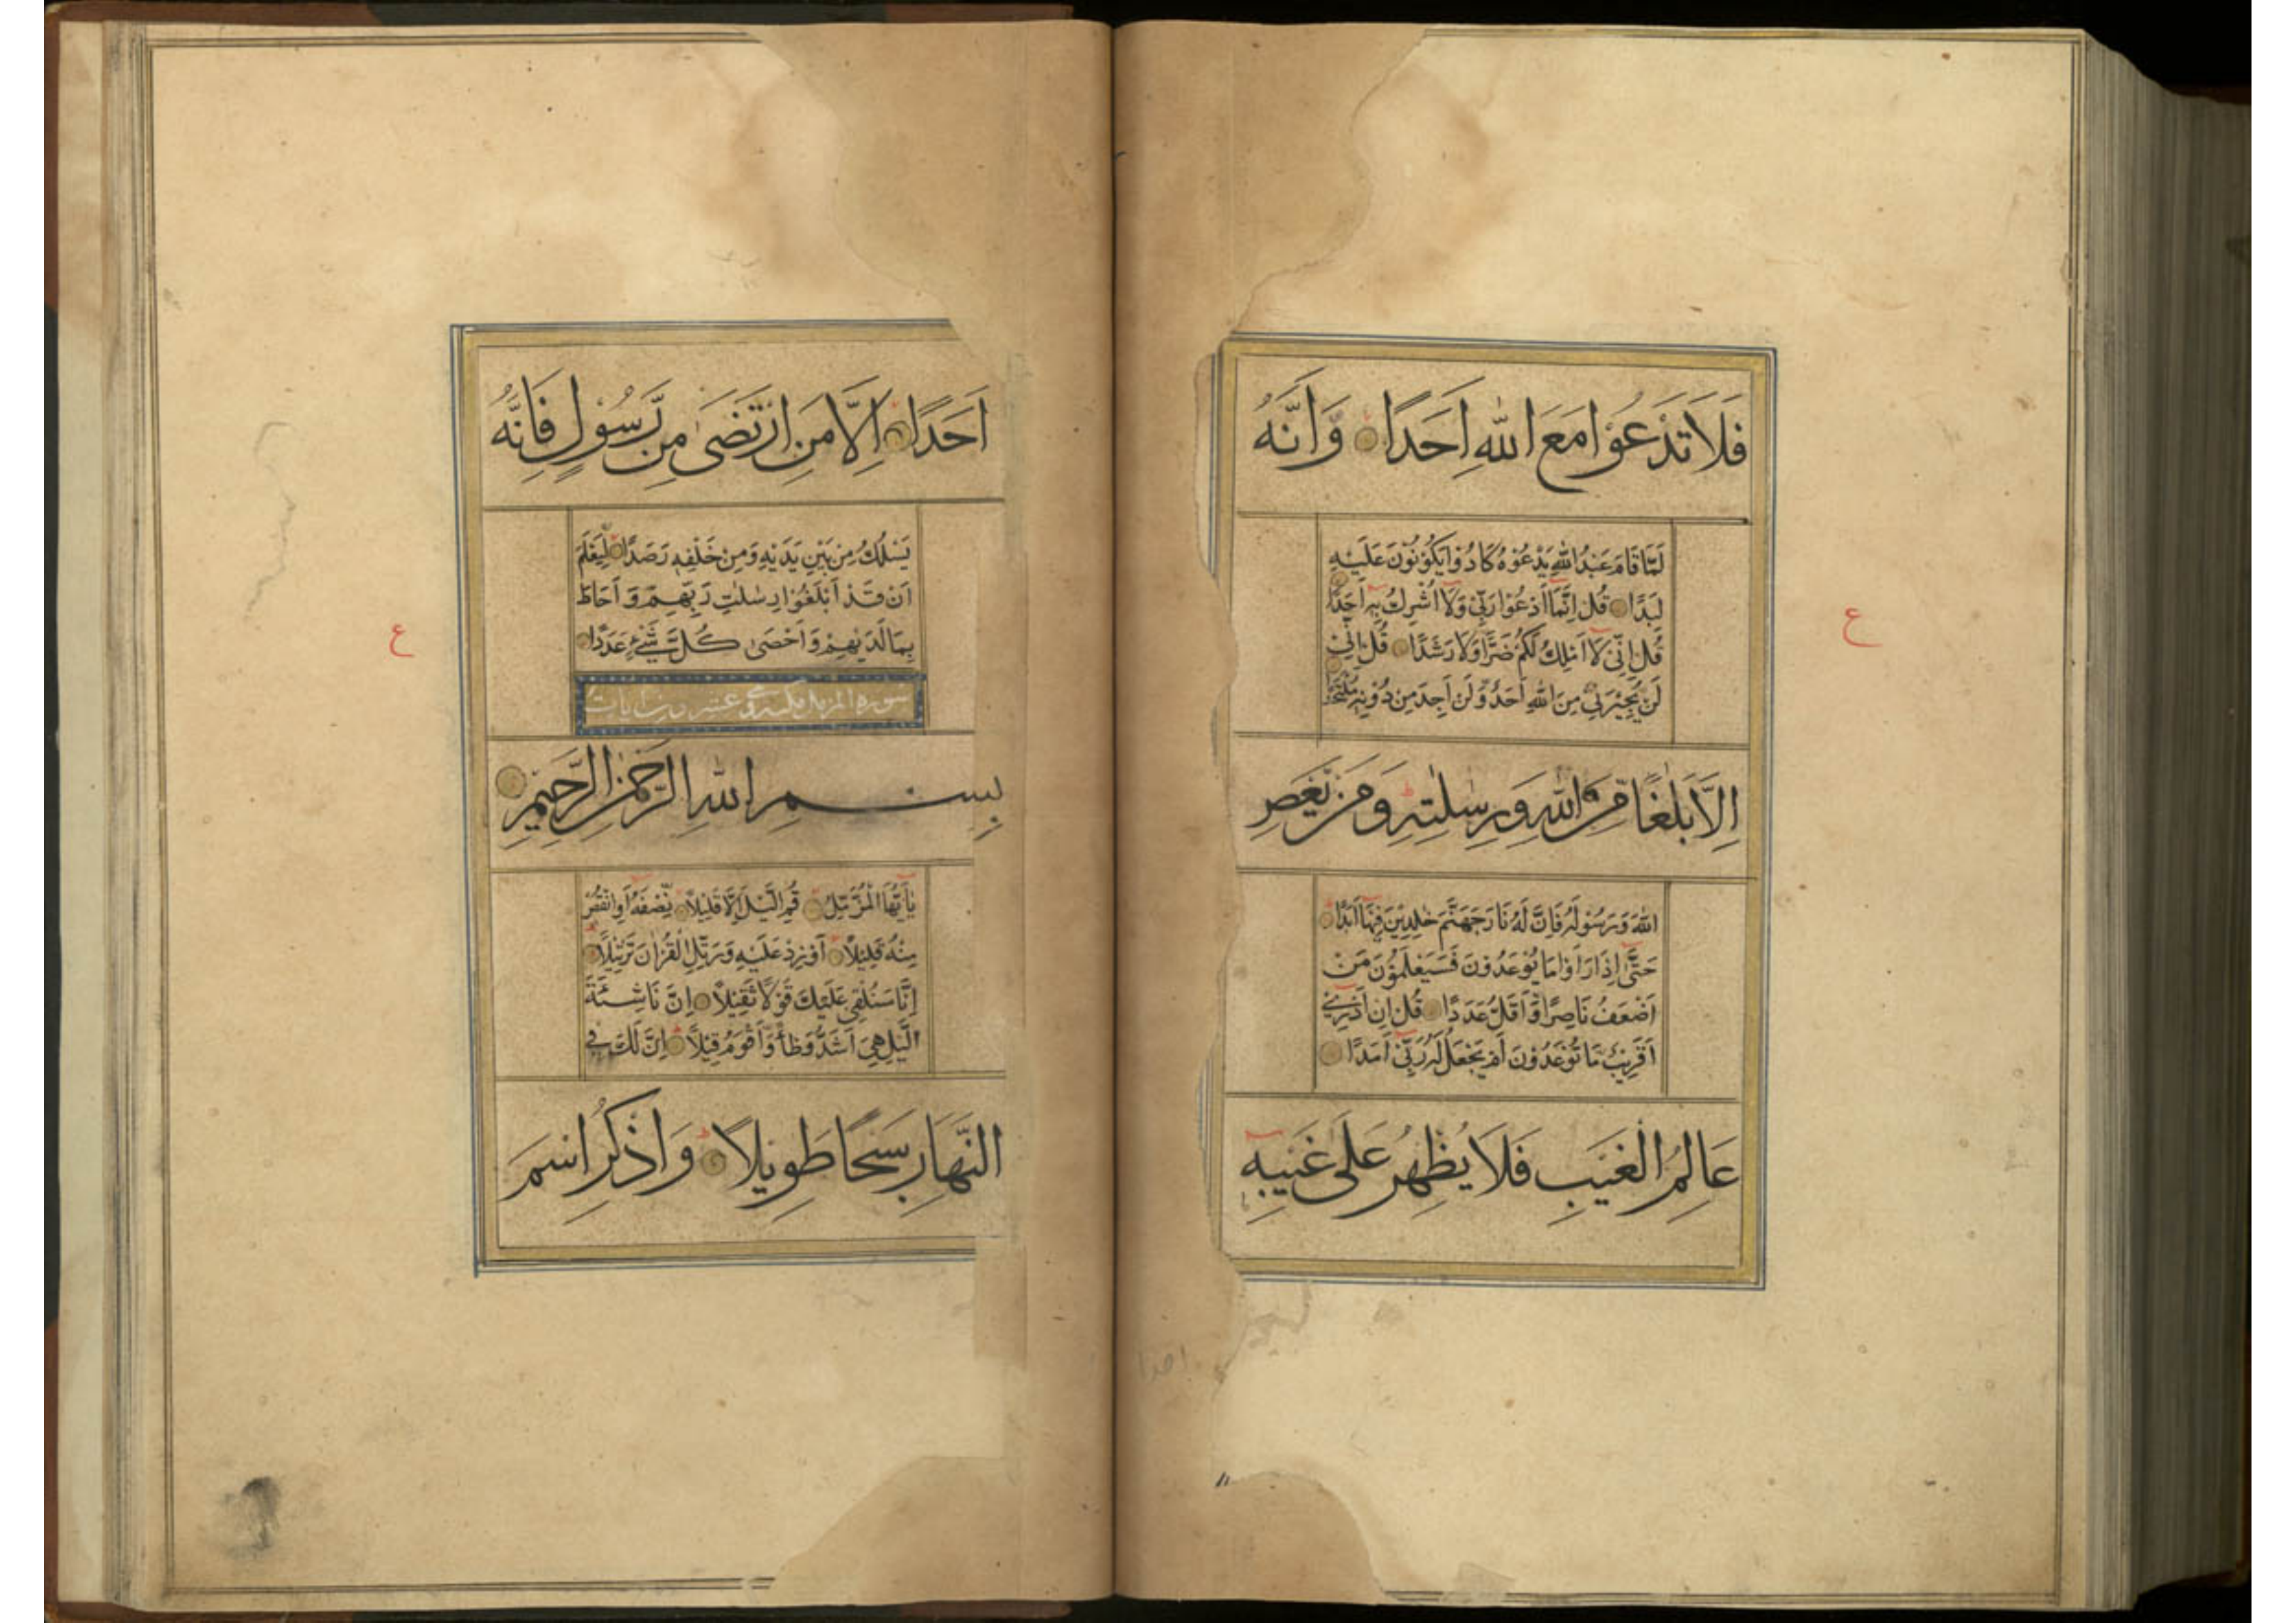 فَلَا تَدْعُوْا مَعَ اللّٰهِ اَحَدًا وَّاَنَّهُ
لَمَّا قَامَ عَبْدُ اللّٰهِ يَدْعُوْهُ كَادُوْا يَكُوْنُوْنَ عَلَيْهِ
لِبَدًا قُلْ اِنَّمَا اَدْعُوْا رَبِّيْ وَلَا اُشْرِكُ بِهٖ اَحَدًا
قُلْ اِنِّيْ لَا اَمْلِكُ لَكُمْ ضَرًّا وَّلَا رَشَدًا قُلْ اِنِّيْ
لَنْ يُّجِيْرَنِيْ مِنَ اللّٰهِ اَحَدٌ وَّلَنْ اَجِدَ مِنْ دُوْنِهٖ مُلْتَحَدًا
اِلَّا بَلٰغًا مِّنَ اللّٰهِ وَرِسٰلٰتِهٖ وَمَنْ يَّعْصِ
اللّٰهَ وَرَسُوْلَهٗ فَاِنَّ لَهٗ نَارَ جَهَنَّمَ خٰلِدِيْنَ فِيْهَا اَبَدًا
حَتّٰى اِذَا رَاَوْا مَا يُوْعَدُوْنَ فَسَيَعْلَمُوْنَ مَنْ
اَضْعَفُ نَاصِرًا وَّاَقَلُّ عَدَدًا قُلْ اِنْ اَدْرِيْ
اَقَرِيْبٌ مَّا تُوْعَدُوْنَ اَمْ يَجْعَلُ لَهٗ رَبِّيْ اَمَدًا
عَالِمُ الْغَيْبِ فَلَا يُظْهِرُ عَلٰى غَيْبِهٖ
ع
اَحَدًا اِلَّا مَنِ ارْتَضٰى مِنْ رَّسُوْلٍ فَاِنَّهٗ
يَسْلُكُ مِنْ بَيْنِ يَدَيْهِ وَمِنْ خَلْفِهٖ رَصَدًا لِّيَعْلَمَ
اَنْ قَدْ اَبْلَغُوْا رِسٰلٰتِ رَبِّهِمْ وَاَحَاطَ
بِمَا لَدَيْهِمْ وَاَحْصٰى كُلَّ شَيْءٍ عَدَدًا
سورة المزمل مكية وهي عشرون ايات
بِسْمِ اللّٰهِ الرَّحْمٰنِ الرَّحِيْمِ
يٰاَيُّهَا الْمُزَّمِّلُ قُمِ الَّيْلَ اِلَّا قَلِيْلًا نِّصْفَهٗ اَوِ انْقُصْ
مِنْهُ قَلِيْلًا اَوْ زِدْ عَلَيْهِ وَرَتِّلِ الْقُرْاٰنَ تَرْتِيْلًا
اِنَّا سَنُلْقِيْ عَلَيْكَ قَوْلًا ثَقِيْلًا اِنَّ نَاشِئَةَ
الَّيْلِ هِيَ اَشَدُّ وَطْأً وَّاَقْوَمُ قِيْلًا اِنَّ لَكَ فِي
النَّهَارِ سَبْحًا طَوِيْلًا وَاذْكُرِ اسْمَ
ع